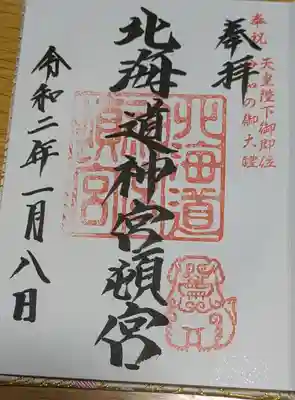 奉祝 天皇陛下御即位
令和の御大礼
奉拝
北海道神宮頓宮
北海道
神宮
頓宮
令和二年一月八日